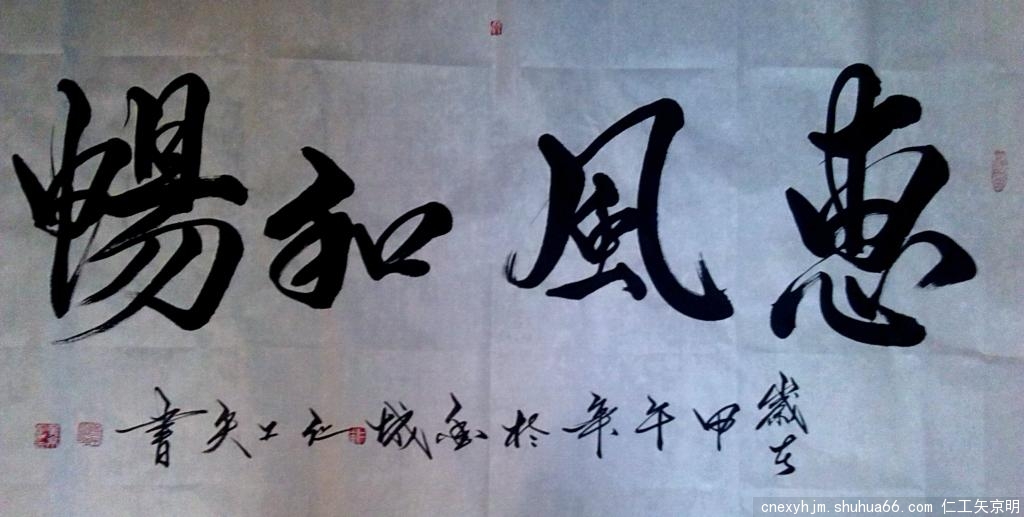 惠風和暢
歲在甲午年於金城仁工矢書
cnexyhjm.shuhua66.com 仁工矢京明